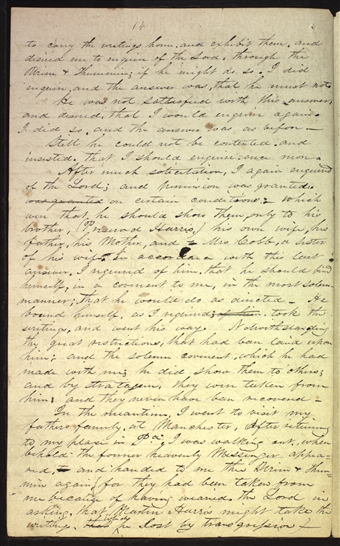 to carry the writings home, and exhibit them, and
desired me to enquire of the Lord, through the
Urim & Thummim, if he might do so. I did
enquire, and the answer was, that he must not
He was not satisfied with this answer,
and desired, that I would enquire again.
I did so, and the answer was as before —
Still he could not be contented, and
insisted, that I should enquire once more —
After much solicitation, I again enquired
of the Lord; and permission was granted,
on certain conditions; Which
were that he should show them, only to his
brother, Preserved Harris, his own wife, his
father, his Mother, and Mrs Cobb, a sister
of his wife. In accordance with this last
answer, I required of him, that he should bind
himself, in a covenant to me, in the most solemn
manner, that he would do as directed — He
bound himself, as I required, took the
writings, and went his way. Notwithstanding
the great restrictions, that had been laid upon
him; and the solemn covenant, which he had
made with me, he did show them to others;
and by stratagem, they were taken from
him: and they never have been recovered —
In the meantime, I went to visit my
fathers family, at Manchester, After returning
to my place in Pa, I was walking out, when
behold, the former heavenly Messenger appea-
red, and handed to me the Urim & Thum-
mim again for they had been taken from
me because of having wearied the Lord in
asking, that Martin Harris might take the
writings. which he lost by transgression —